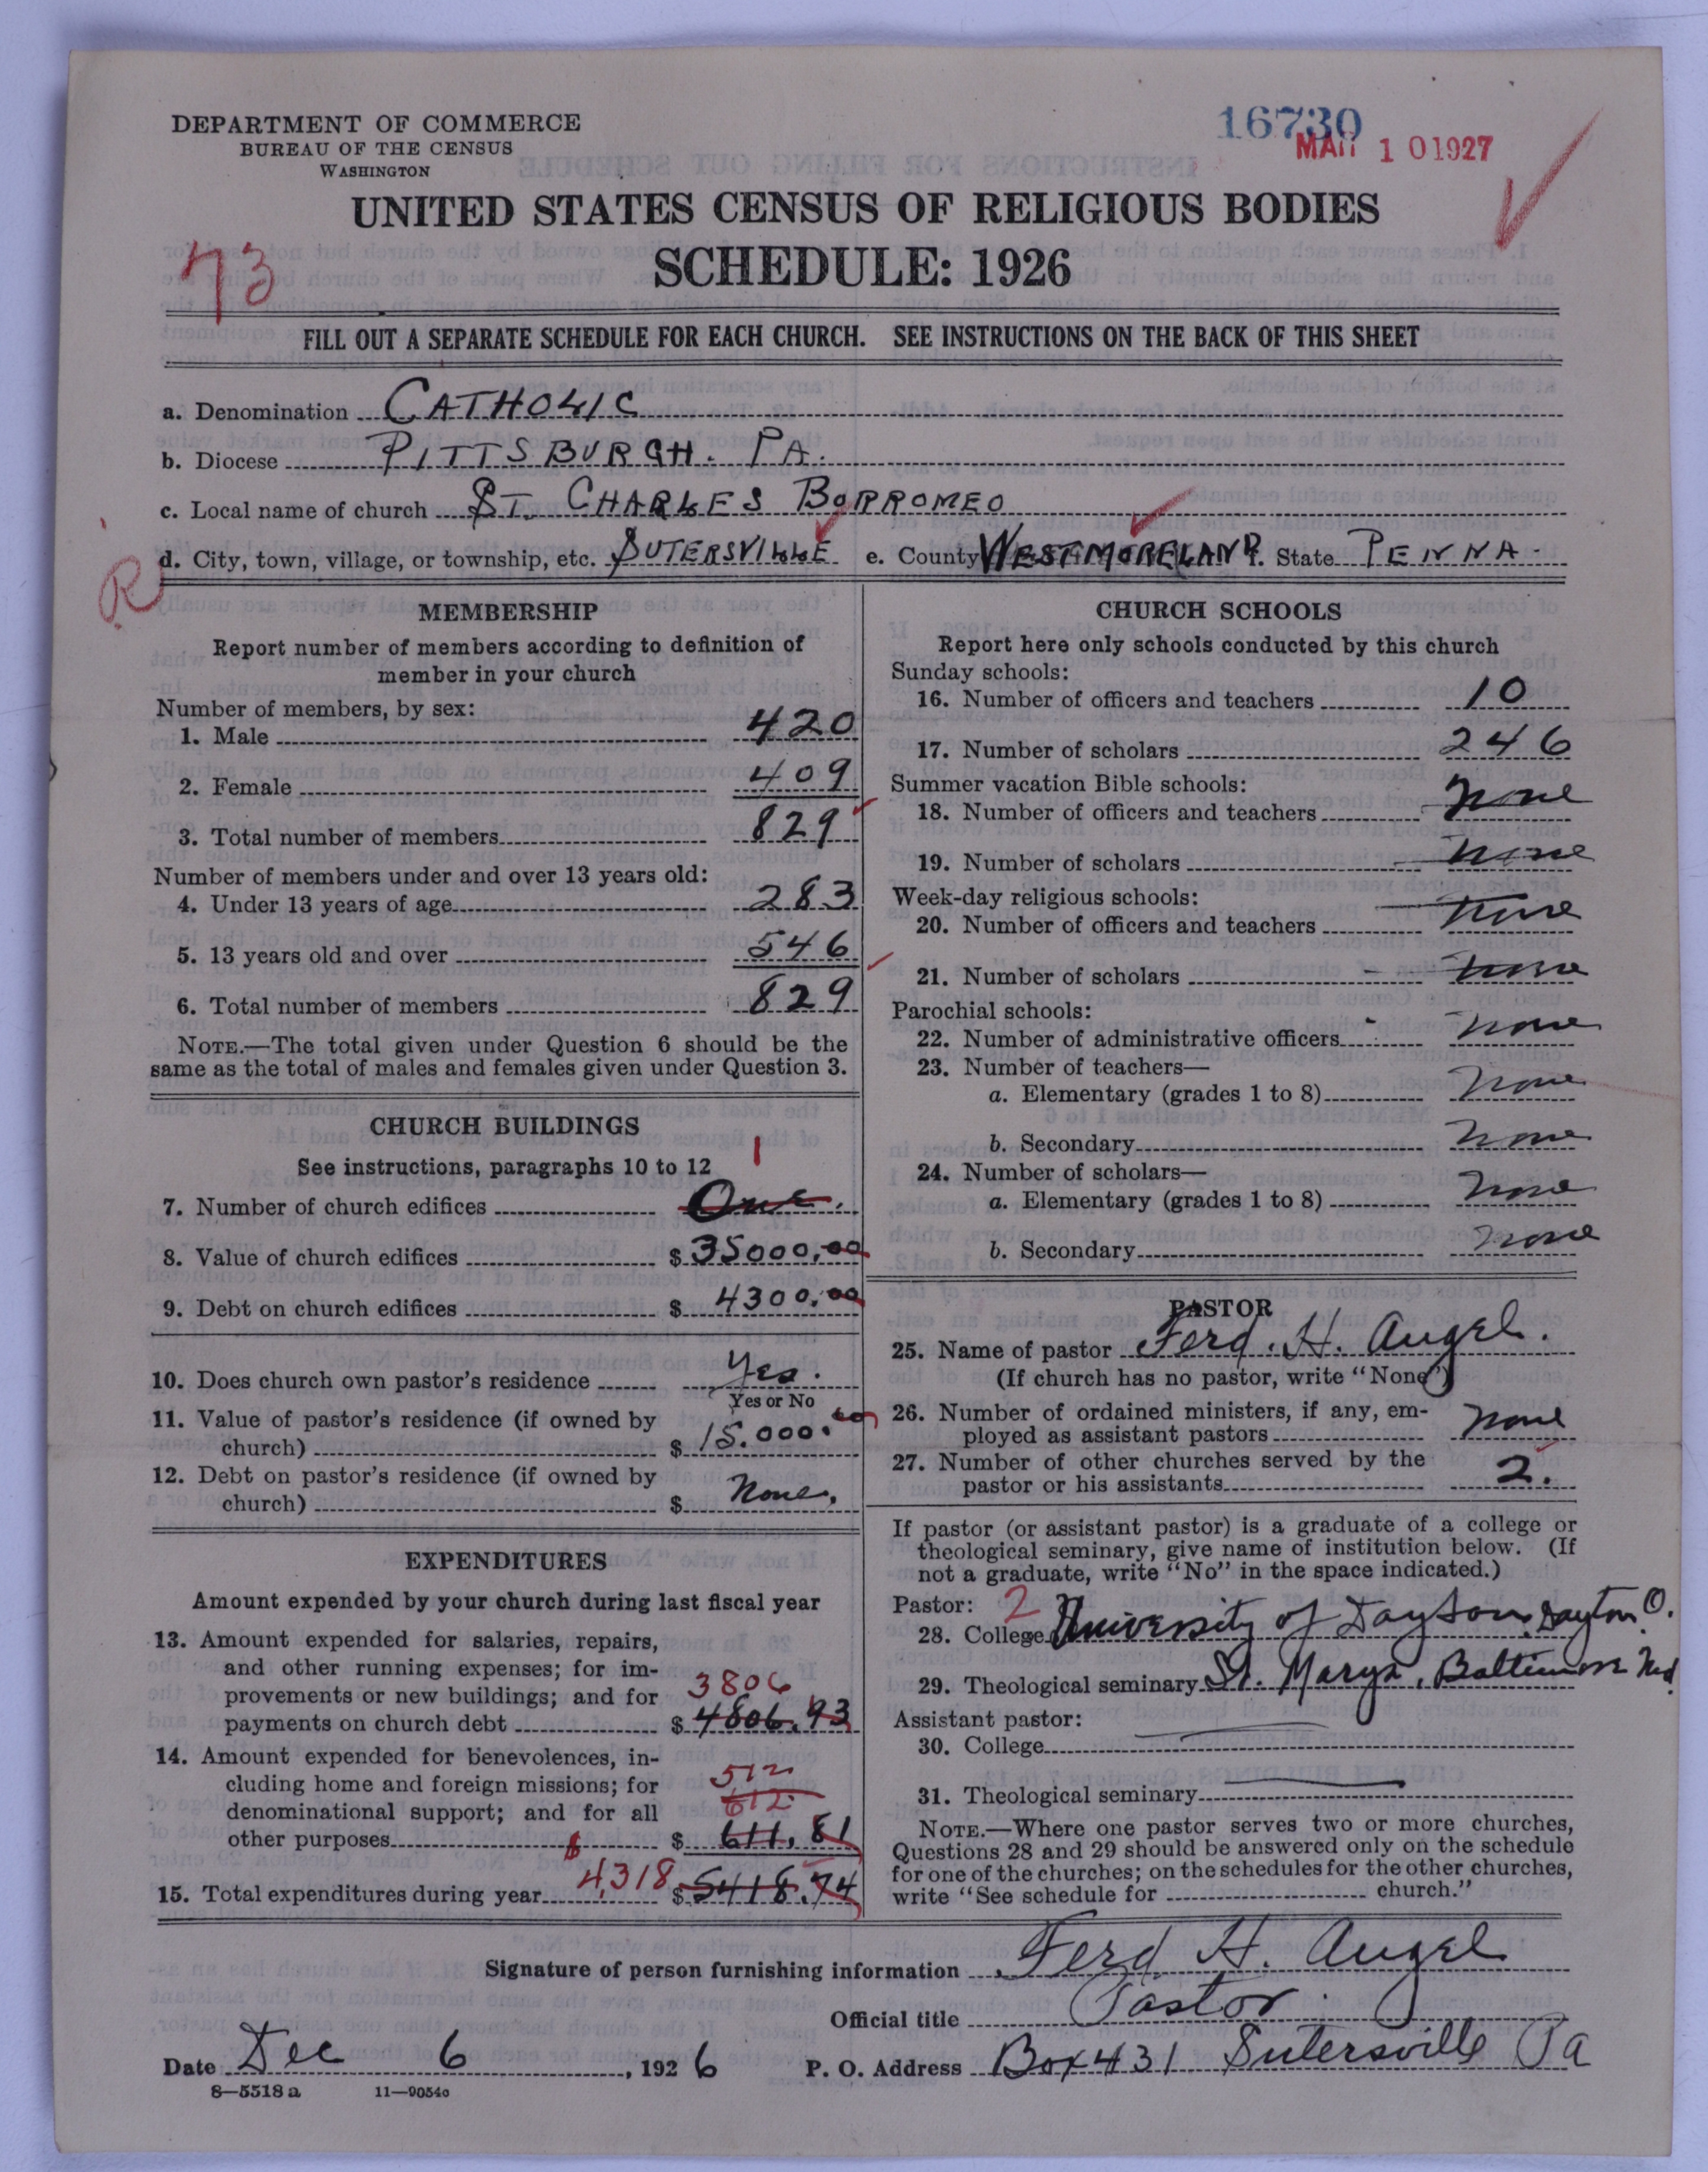 DEPARTMENT OF COMMERCE
BUREAU OF THE CENSUS
WASHINGTON
16730
MAR 10 1927
UNITED STATES CENSUS OF RELIGIOUS BODIES
SCHEDULE: 1926
73
FILL OUT A SEPARATE SCHEDULE FOR EACH CHURCH. SEE INSTRUCTIONS ON THE BACK OF THIS SHEET
a. Denomination CATHOLIC
b. Diocese PITTSBURGH. PA.
c. Local name of church ST. CHARLES BORROMEO
d. City, town, village, or township, etc. SUTERSVILLE e. County WESTMORELAND f. State PENNA.
R
MEMBERSHIP
Report number of members according to definition of
member in your church
Number of members, by sex:
1. Male 420
2. Female 409
3. Total number of members 829
Number of members under and over 13 years old:
4. Under 13 years of age 283
5. 13 years old and over 546
6. Total number of members 829
NOTE.—The total given under Question 6 should be the
same as the total of males and females given under Question 3.
CHURCH BUILDINGS
See instructions, paragraphs 10 to 12
1
7. Number of church edifices One.
8. Value of church edifices $ 35000.00
9. Debt on church edifices $ 4300.00
10. Does church own pastor's residence Yes.
Yes or No
11. Value of pastor's residence (if owned by
church) $ 15.000.00
12. Debt on pastor's residence (if owned by
church) $ None.
EXPENDITURES
Amount expended by your church during last fiscal year
13. Amount expended for salaries, repairs,
and other running expenses; for im-
provements or new buildings; and for 3806
payments on church debt $ 4806.93
14. Amount expended for benevolences, in-
cluding home and foreign missions; for 512
denominational support; and for all 612
other purposes $ 611.81
15. Total expenditures during year 4,318 $ 5418.74
CHURCH SCHOOLS
Report here only schools conducted by this church
Sunday schools:
16. Number of officers and teachers 10
17. Number of scholars 246
Summer vacation Bible schools:
18. Number of officers and teachers none
19. Number of scholars none
Week-day religious schools:
20. Number of officers and teachers none
21. Number of scholars none
Parochial schools:
22. Number of administrative officers none
23. Number of teachers—
a. Elementary (grades 1 to 8) none
b. Secondary none
24. Number of scholars—
a. Elementary (grades 1 to 8) none
b. Secondary none
PASTOR
25. Name of pastor Ferd. H. Angel.
(If church has no pastor, write "None")
26. Number of ordained ministers, if any, em-
ployed as assistant pastors none
27. Number of other churches served by the
pastor or his assistants 2.
If pastor (or assistant pastor) is a graduate of a college or
theological seminary, give name of institution below. (If
not a graduate, write "No" in the space indicated.)
Pastor: 2
28. College University of Dayton, Dayton O.
29. Theological seminary St. Marys, Baltimore Md.
Assistant pastor:
30. College
31. Theological seminary
NOTE.—Where one pastor serves two or more churches,
Questions 28 and 29 should be answered only on the schedule
for one of the churches; on the schedules for the other churches,
write "See schedule for church."
Signature of person furnishing information Ferd. H. Angel
Official title Pastor.
Date Dec 6, 1926 P. O. Address Box 431 Sutersville Pa
8—5518 a 11—9054c